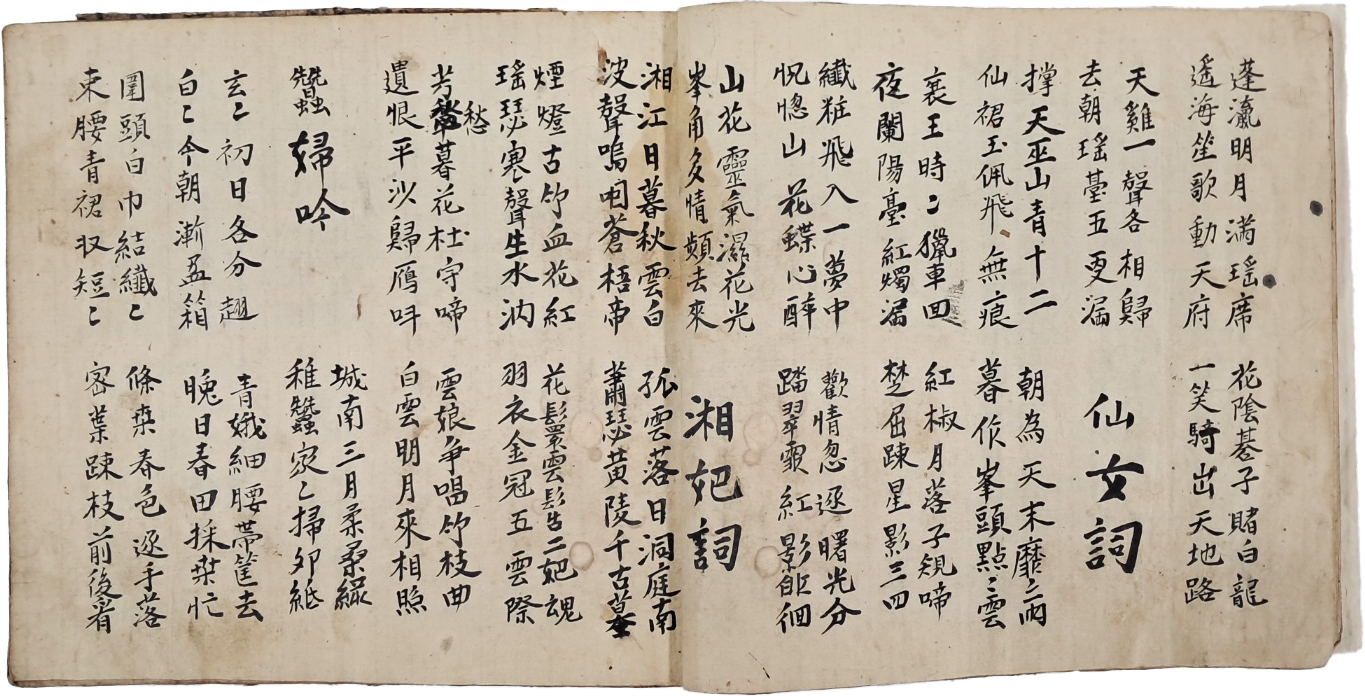 蓬瀛明月滿瑤席
花陰碁子賭白龍
遙海笙歌動天府
一笑騎出天地路
天雞一聲各相歸
去朝瑤臺五更漏
仙女詞
撑天巫山青十二
朝為天末靡〻雨
仙裙玉佩飛無痕
暮作峯頭點〻雲
襄王時〻獵車回
紅椒月落子規啼
夜闌陽臺紅燭漏
楚屈踈星影三四
纖粧飛入一夢中
歡情忽逐曙光分
怳惚山花蝶心醉
踏翠霓紅影徘徊
山花靈氣濕花光
峯角多情頻去來
湘妃詞
湘江日暮秋雲白
孤雲落日洞庭南
波聲嗚咽蒼梧帝
蕭瑟黃陵千古墓
煙燈古竹血花紅
花鬟雲髻二妃魂
瑤瑟寒聲生水汭
羽衣金冠五雲際
芳愁暮花杜宇啼
雲娘爭唱竹枝曲
遺恨平沙歸鴈呌
白雲明月來相照
蠶婦吟
城南三月柔桑綠
稚蠶家〻掃卵紙
玄〻初日各分翅
青娥細腰帶筐去
白〻今朝漸盈箱
晚日春田採桒忙
圍頭白巾結纖〻
條桒春色逐手落
束腰青裙収短〻
密葉踈枝前後看